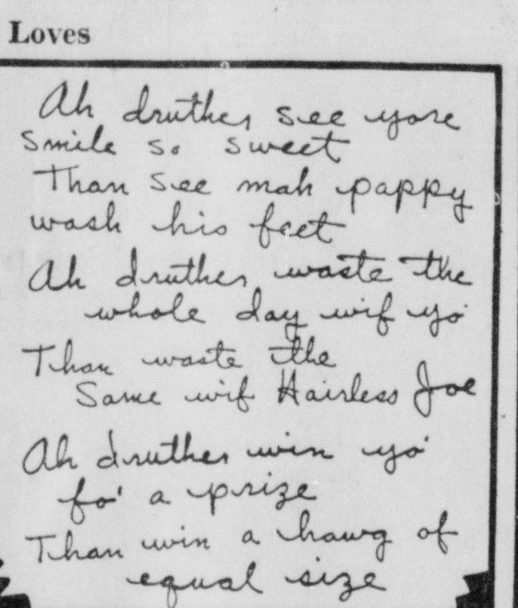 Loves
Ah druther see yore
smile so sweet
Than see mah pappy
wash his feet
Ah druther waste the
whole day wif yo'
Than waste the
Same wif Hairless Joe
Ah druther win yo'
fo' a prize
Than win a hawg of
equal size